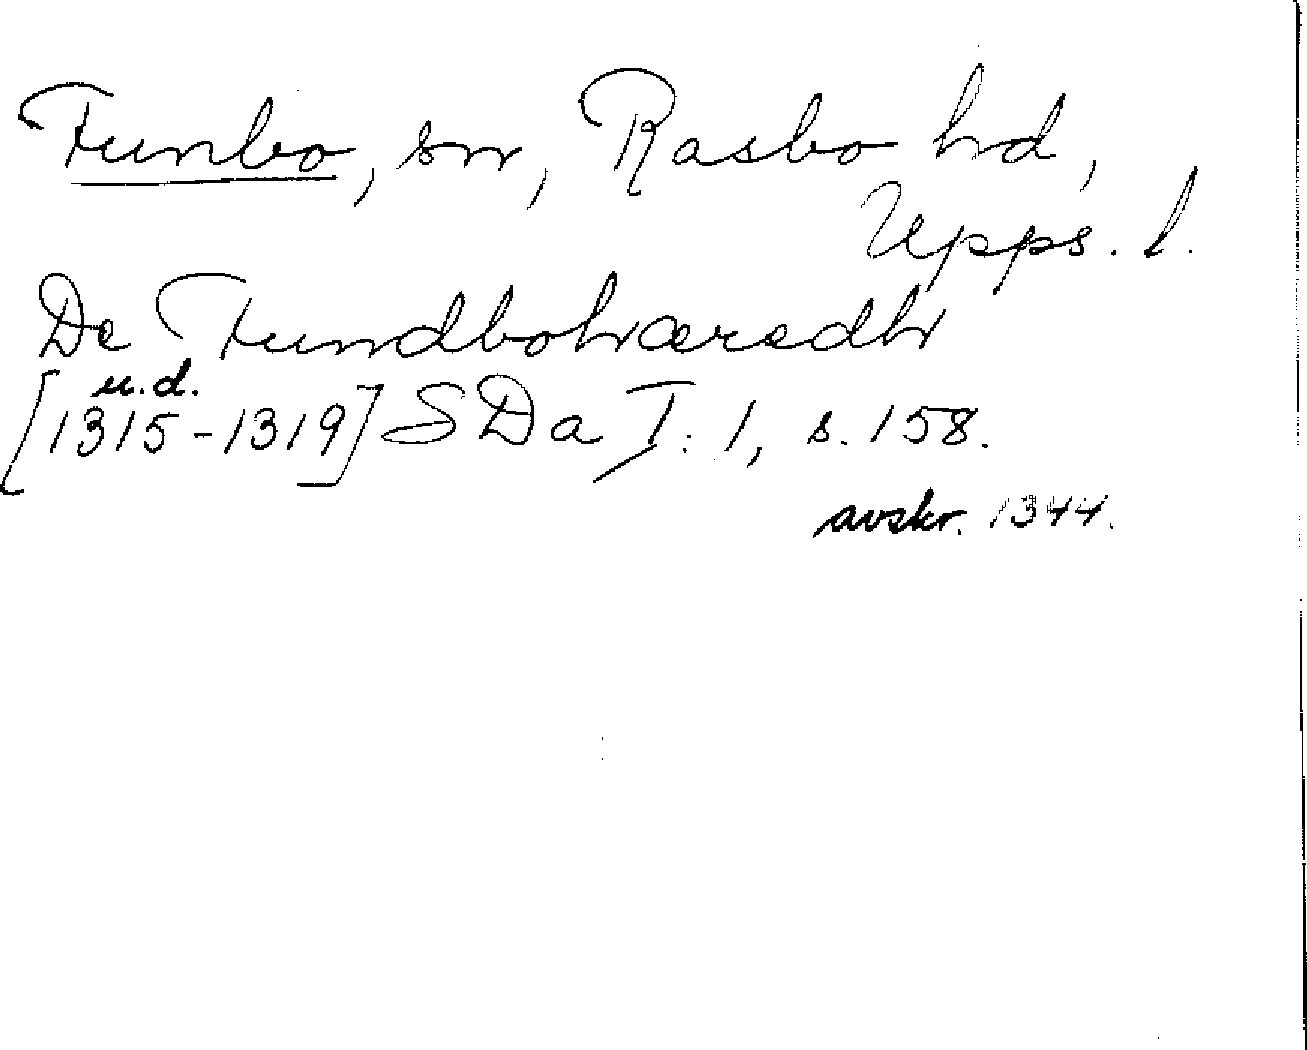 Funbo, sn, Rasbo hd,
Upps. l.
De Fundbohæredh
u.d.
[1315-1319] SDa I:1, s. 158.
avskr. 1344.